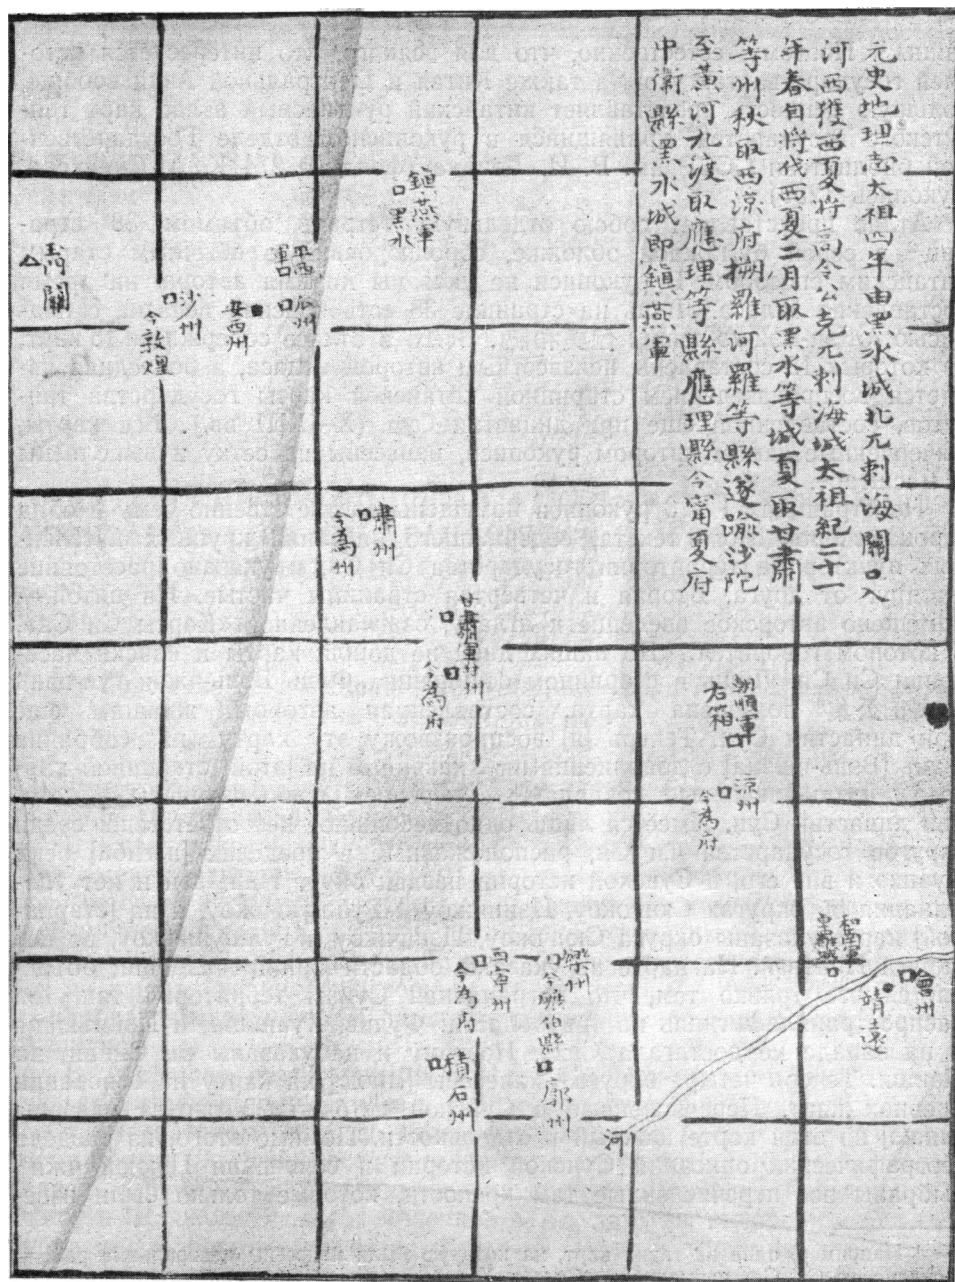 元史地理志太祖四年由黑水城北兀剌海關口入
河西獲西夏將高令公克兀剌海城太祖紀二十一
年春自將伐西夏二月取黑水等城夏取甘肅
等州秋取西涼府搠羅河羅等縣遂踰沙陀
至黃河九渡取應理等縣應理縣今甯夏府
中衛縣黑水城即鎮燕軍
鎮燕軍
黑水
平西軍
瓜州
安西州
沙州
敦煌
陽關
肅州
今為州
甘肅軍甘州
今為府
朝順軍
右箱
涼州
今為府
和南軍
會州
靖遠
樂州
今碾伯縣
西甯州
今為府
廓州
積石州
河